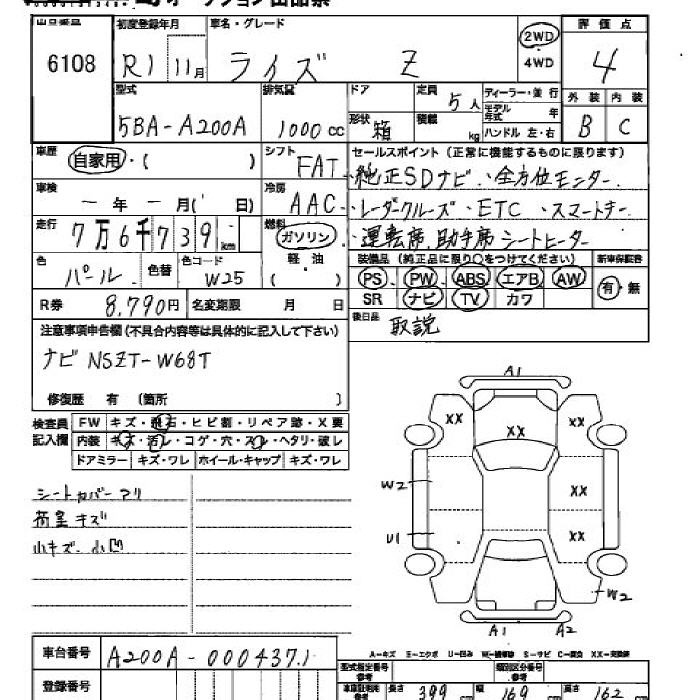 オークション出品票
出品番号 初度登録年月 車名・グレード 評価点
6108 R1 11月 ライズ Z 2WD 4WD 4
型式 排気量 ドア 定員 5人 ディーラー・並行 外装 内装
5BA-A200A 1000cc 形状 箱 積載 kg モデル年式 年 ハンドル 左・右 B C
車歴 自家用・( ) シフト FAT セールスポイント (正常に機能するものに限ります)
・純正SDナビ ・全方位モニター
車検 ー年ー月( 日) 冷房 AAC ・レーダークルーズ ・ETC ・スマートキー
走行 7万6千739km 燃料 ガソリン ・運転席、助手席シートヒーター
色 パール 色替 色コード W25 (軽油) 装備品 (純正品に限り○をつけてください) 新車保証書
PS PW ABS エアB AW 有・無
R券 8,790円 名変期限 月 日 SR ナビ TV カワ
注意事項申告欄(不具合内容等は具体的に記入して下さい) 後日品 取説
ナビ NSZT-W68T
修復歴 有 (箇所 )
検査員記入欄 FW キズ・飛石・ヒビ割・リペア跡・X要
内装 キズ・汚レ・コゲ・穴・スレ・ヘタリ・破レ
ドアミラー キズ・ワレ ホイール・キャップ キズ・ワレ
シートカバーアリ
荷室キズ
小キズ、小凹
A1
XX XX XX
W2 XX
U1 XX
W2
A1 A2
A-キズ E-エクボ U-凹み W-補修跡 S-サビ C-腐食 XX-交換済
車台番号 A200A-0004371
登録番号
型式指定番号 参考 類別区分番号 参考
車庫証明用 参考 長さ 399 cm 幅 169 cm 高さ 162 cm